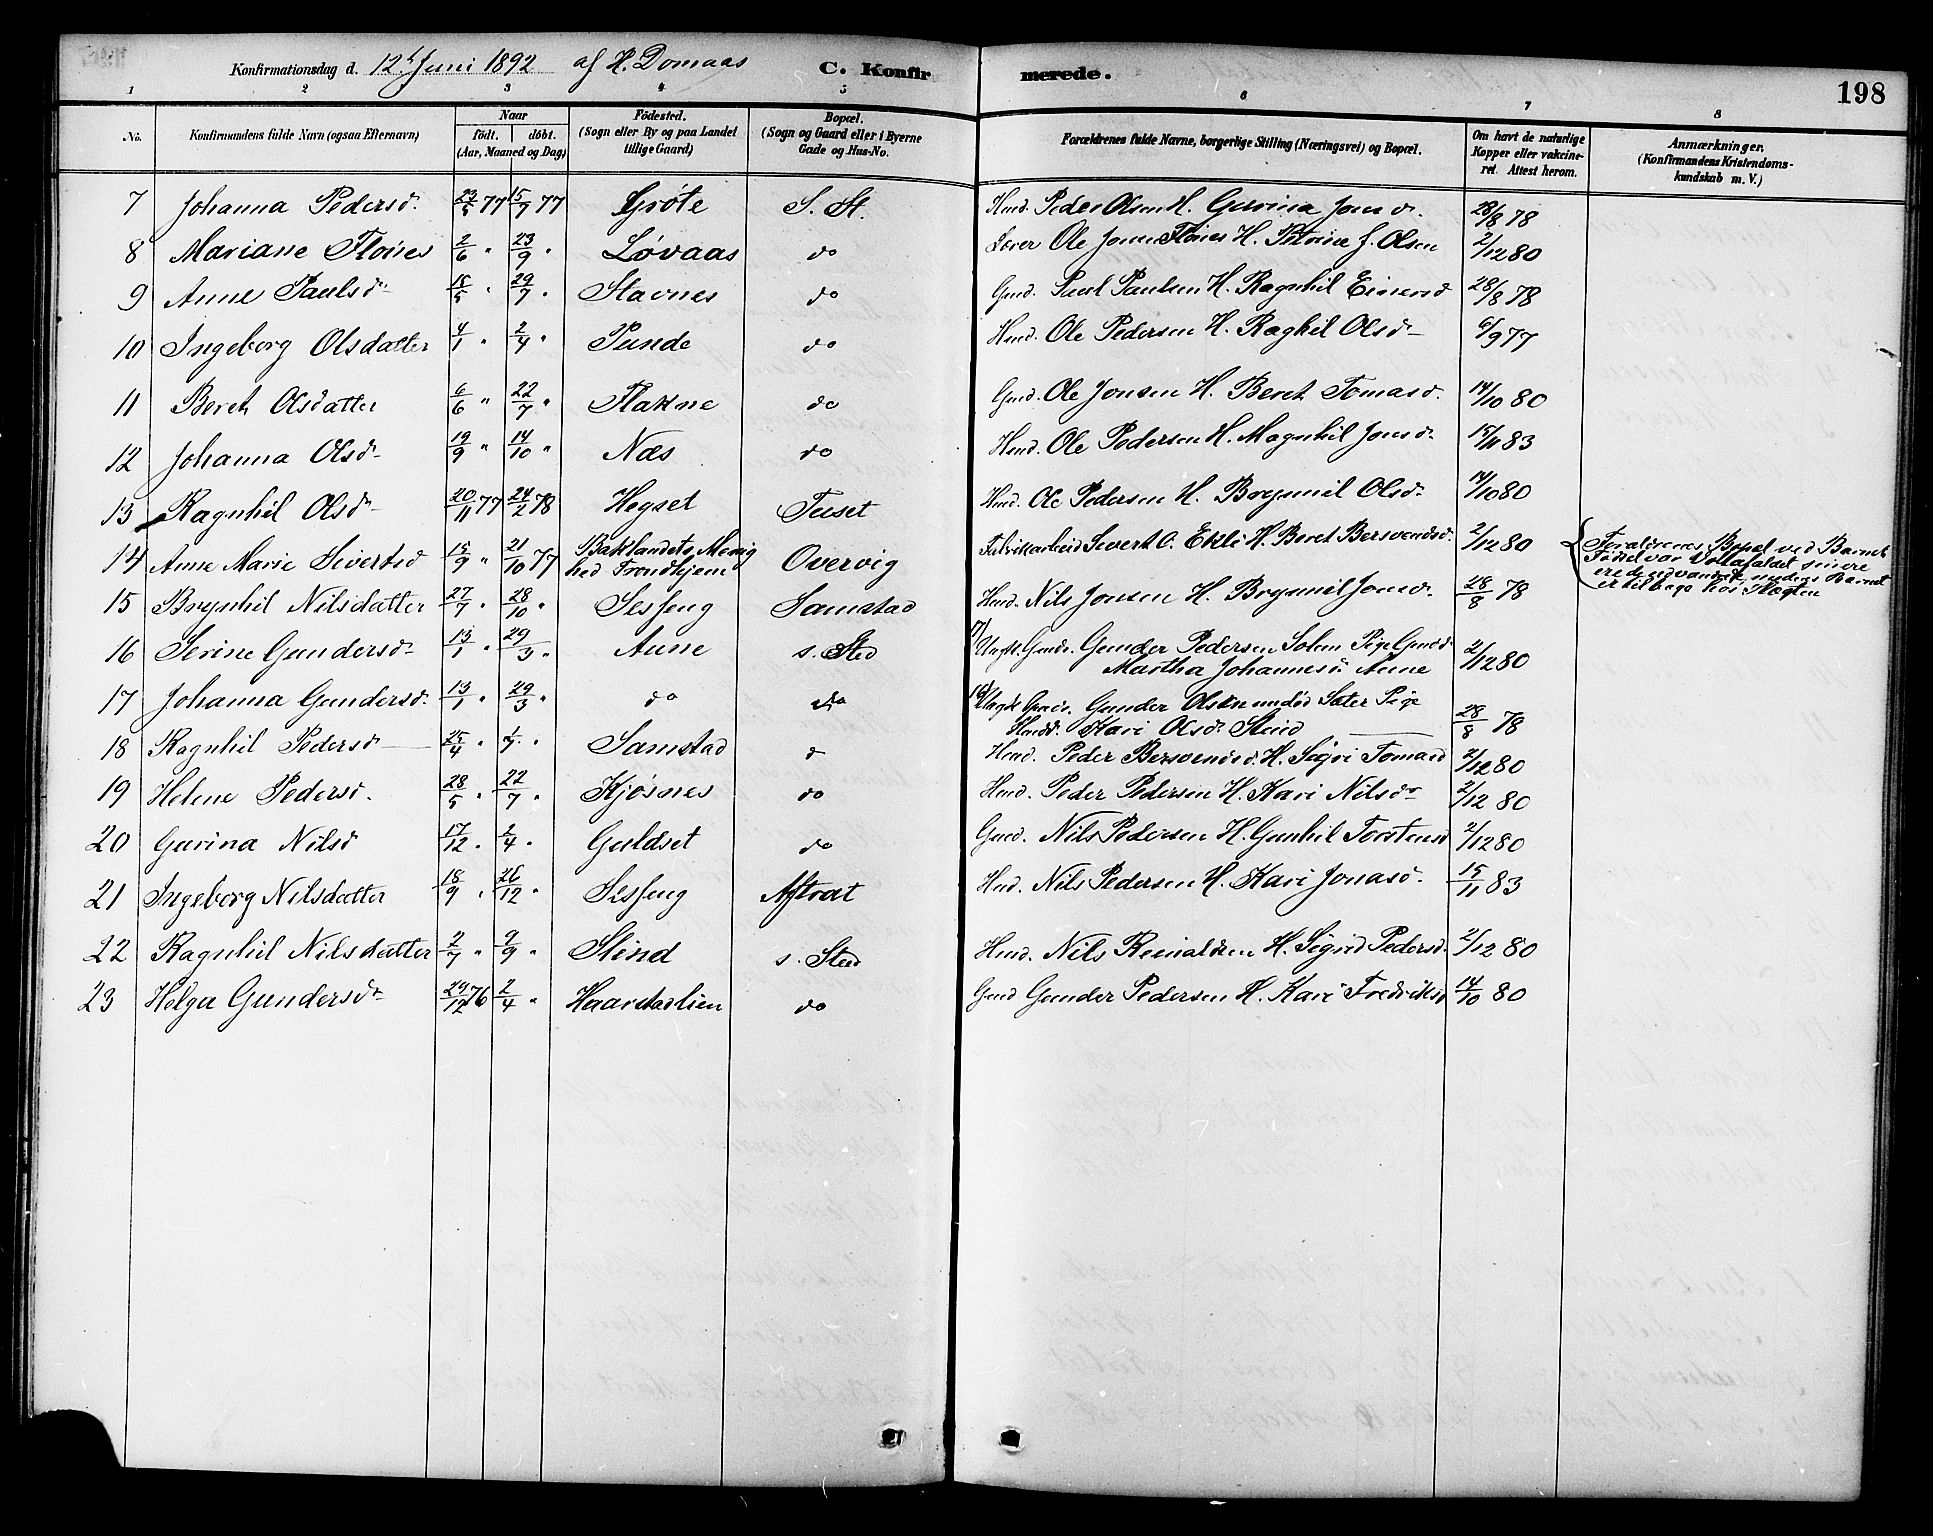 Konfirmationsdag d. 12t Juni 1892 af H. Domaas C. Konfirmerede. 198
1 2 3 4 5 6 7 8
No. Konfirmandens fulde Navn (ogsaa Efternavn) Naar födt. döbt. (Aar, Maaned og Dag) Födested. (Sogn eller By og paa Landet tillige Gaard) Bopæl. (Sogn og Gaard eller i Byerne Gade og Hus-No. Forældrenes fulde Navne, borgerlige Stilling (Næringsvei) og Bopæl. Om havt de naturlige Kopper eller vakcineret. Attest herom. Anmærkninger. (Konfirmandens Kristendomskundskab m. V.)
7 Johanna Pedersd. 22/5 77 15/7 77 Grøte S. St. Hmd. Peder Olsen H. Gurina Jonsd. 28/8 78
8 Mariane Flønes 2/6 " 23/9 " Løvaas do Lærer Ole Jonsen Flønes H. Petrine J. Olsen 2/12 80
9 Anne Paulsd 18/5 " 29/7 " Stavnes do Gmd. Paul Paulsen H. Ragnhil Einersd 28/8 78
10 Ingeborg Olsdatter 4/1 " 2/4 " Punde do Hmd. Ole Pedersen H. Raghil Olsd 6/9 77
11 Beret Olsdatter 6/6 " 22/7 " Flakne do Gmd. Ole Jonsen H. Beret Tomasd. 14/10 80
12 Johanna Olsd 19/9 " 14/10 " Næs do Hmd. Ole Pedersen H. Magnhil Jonsd. 15/11 83
13 Ragnhil Olsd 20/11 77 24/2 78 Hegset Tuset Hmd. Ole Pedersen H. Brynhil Olsd. 14/10 80
14 Anne Marie Sivertsd 15/9 " 21/10 77 Baklandets Menighed Trondhjem Overvig Fabrikarbeid Sivert O. Ekle H. Beret Bersvendsd. 2/12 80 Forældrenes Bopel ved Barnets Fødsel var Vollafaldet senere ere de udvandret, medens Barnet er tilbage hos Slægten
15 Brynhil Nilsdatter 27/7 " 28/10 " Sesseng Samstad Hmd. Nils Jonsen H. Brynhil Jonsd. 28/8 78
16 Serine Gundersd 13/1 " 29/3 " Aune s. Sted Ungk. Gmds. Gunder Pedersen Solem Pige Gmdd. Martha Johannesd. Aune 2/12 80
17 Johanna Gundersd. 13/1 " 29/3 " do do Ungk Gmds. Gunder Olsen Sæter Pige Hmdd. Kari Olsd. Stind 28/8 78
18 Ragnhil Pedersd 25/4 " 1/7 " Samstad d Hmd. Peder Bersvendsd. H. Sigri Tomasd 2/12 80
19 Helene Pedersd. 28/5 " 22/7 " Kjøsnes do Hmd. Peder Pedersen H. Kari Nilsd 2/12 80
20 Gurina Nilsd 17/12 " 2/4 " Guldset do Gmd. Nils Pedersen H. Gunhil Torstensd 2/12 80
21 Ingeborg Nilsdatter 18/9 " 26/12 " Sesseng Aftret Hmd. Nils Pedersen H. Kari Jonasd. 15/11 83
22 Ragnhil Nilsdatter 2/7 " 9/9 " Stind s. Sted Hmd. Nils Reinaldsen H. Sigrid Pedersd. 2/12 80
23 Helga Gundersd 29/12 76 2/4 " Haarstadlien do Gmd Gunder Pedersen H. Kari Fredriksd 14/10 80